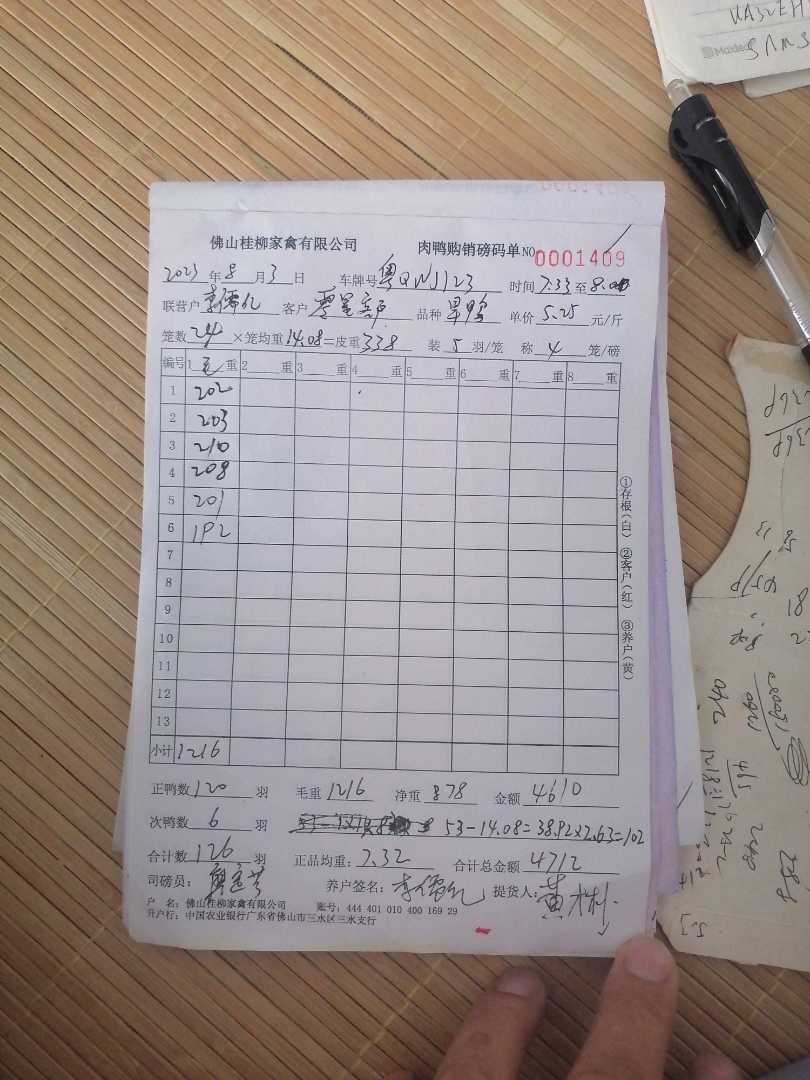 佛山桂柳家禽有限公司 肉鸭购销磅码单 NO 0001409
2023年8月3日 车牌号 粤QWJ123 时间 7:33至8:00
联营户 李儒亿 客户 零星客户 品种 旱鸭 单价 5.25 元/斤
笼数 24 ×笼均重 14.08=皮重 338 装 5 羽/笼 称 4 笼/磅
编号 1 毛 重 2 重 3 重 4 重 5 重 6 重 7 重 8 重
1 202
2 203
3 210
4 208
5 201
6 192
7
8
9
10
11
12
13
小计 1216
①存根(白) ②客户(红) ③养户(黄)
正鸭数 120 羽 毛重 1216 净重 878 金额 4610
次鸭数 6 羽 53-14.08=38.92×2.63=102
合计数 126 羽 正品均重: 7.32 合计总金额 4712
司磅员: 养户签名: 李儒亿 提货人: 黄木彬
户 名: 佛山桂柳家禽有限公司 账号: 444 401 010 400 169 29
开户行: 中国农业银行广东省佛山市三水区三水支行